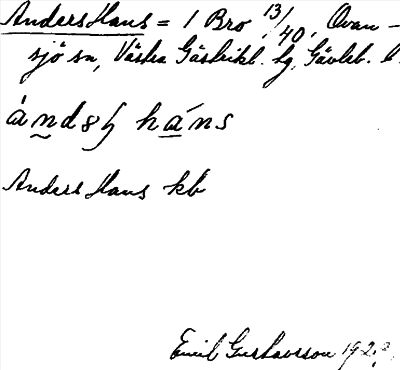 Anders Hans = 1 Bro 13/40, Ovan-
sjö sn, Västra Gästrikl. hg, Gävleb. l.
ánds hans
Anders Hans kb
Emil Gustavsson 192